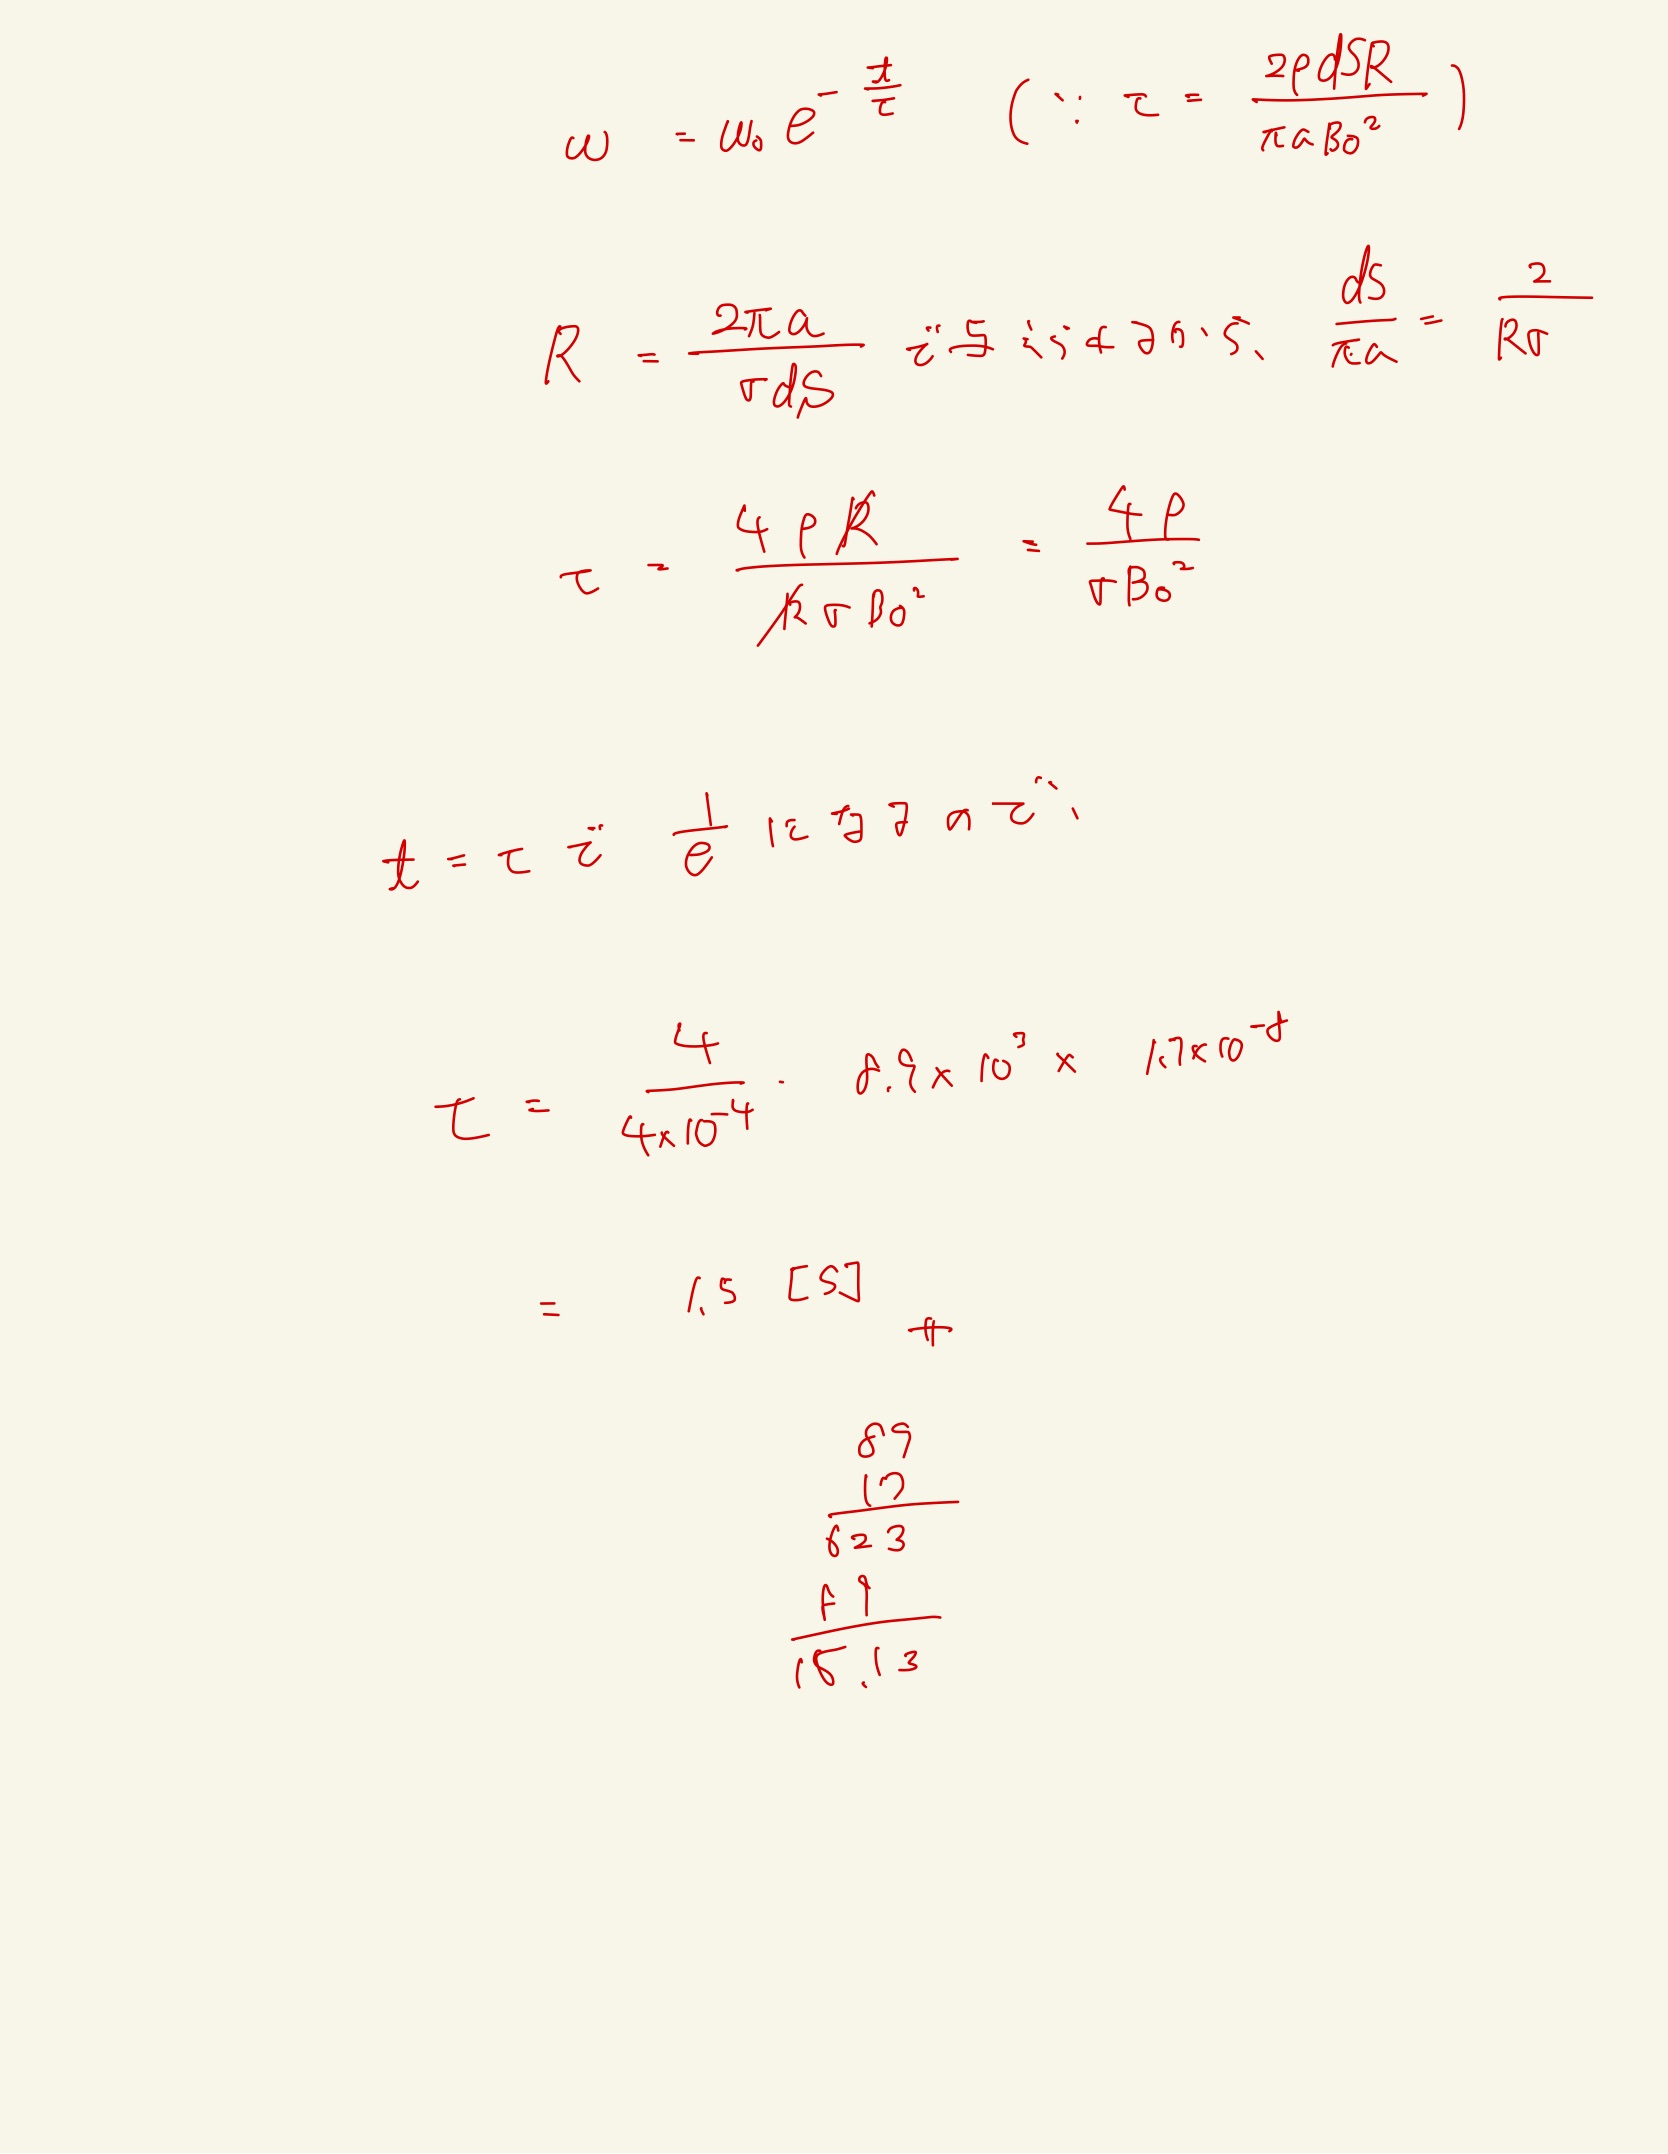 ω = ω₀ e^{-t/τ} (∵ τ = 2ρdSR / πaB₀²)
R = 2πa / σdS で与えられるから、 dS / πa = 2 / Rσ
τ = 4ρR / RσB₀² = 4ρ / σB₀²
t = τ で 1/e になるので、
τ = 4 / 4×10⁻⁴ · 8.9×10³ × 1.7×10⁻⁸
= 1.5 [S]
89
17
623
89
15.13